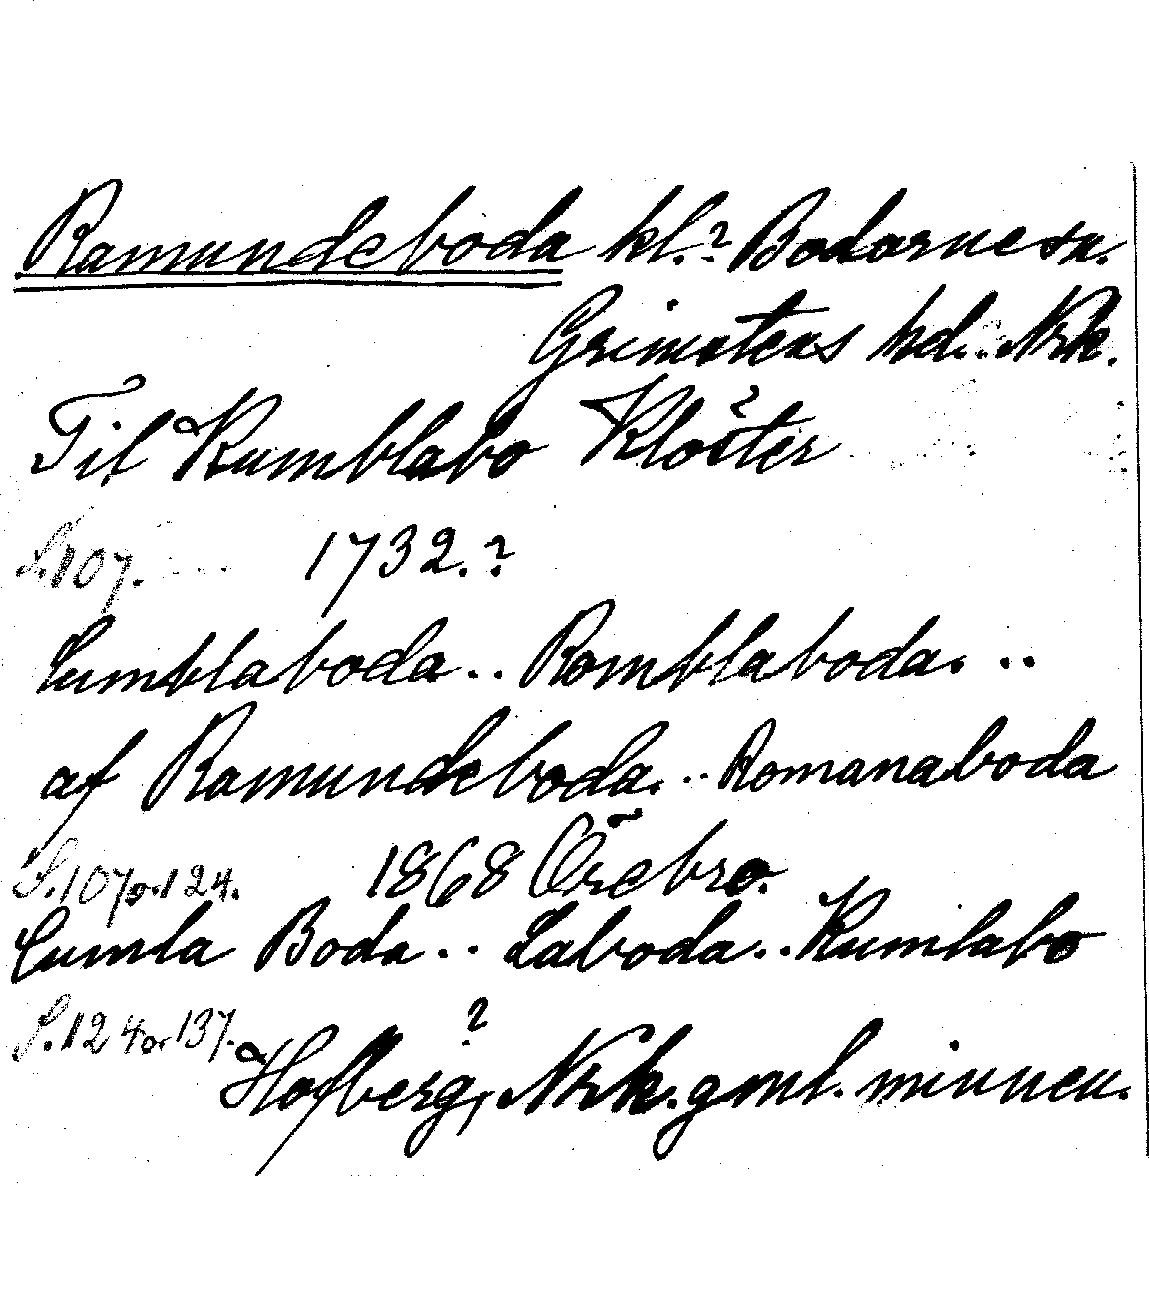 Ramundeboda kl.? Bodarne sn.
Grimstens hd. Nrk.
Til Kumblabo Kloster ?
S.107. 1732.?
Lumblaboda.. Romblaboda. ..
af Ramundeboda. .. Romanaboda
S.107 o. 124. 1868 Örebro.
Lumla Boda.. Laboda.. Kumlabo
S.124 or 137. ?
Hofberg, Nrk. gml. minnen.